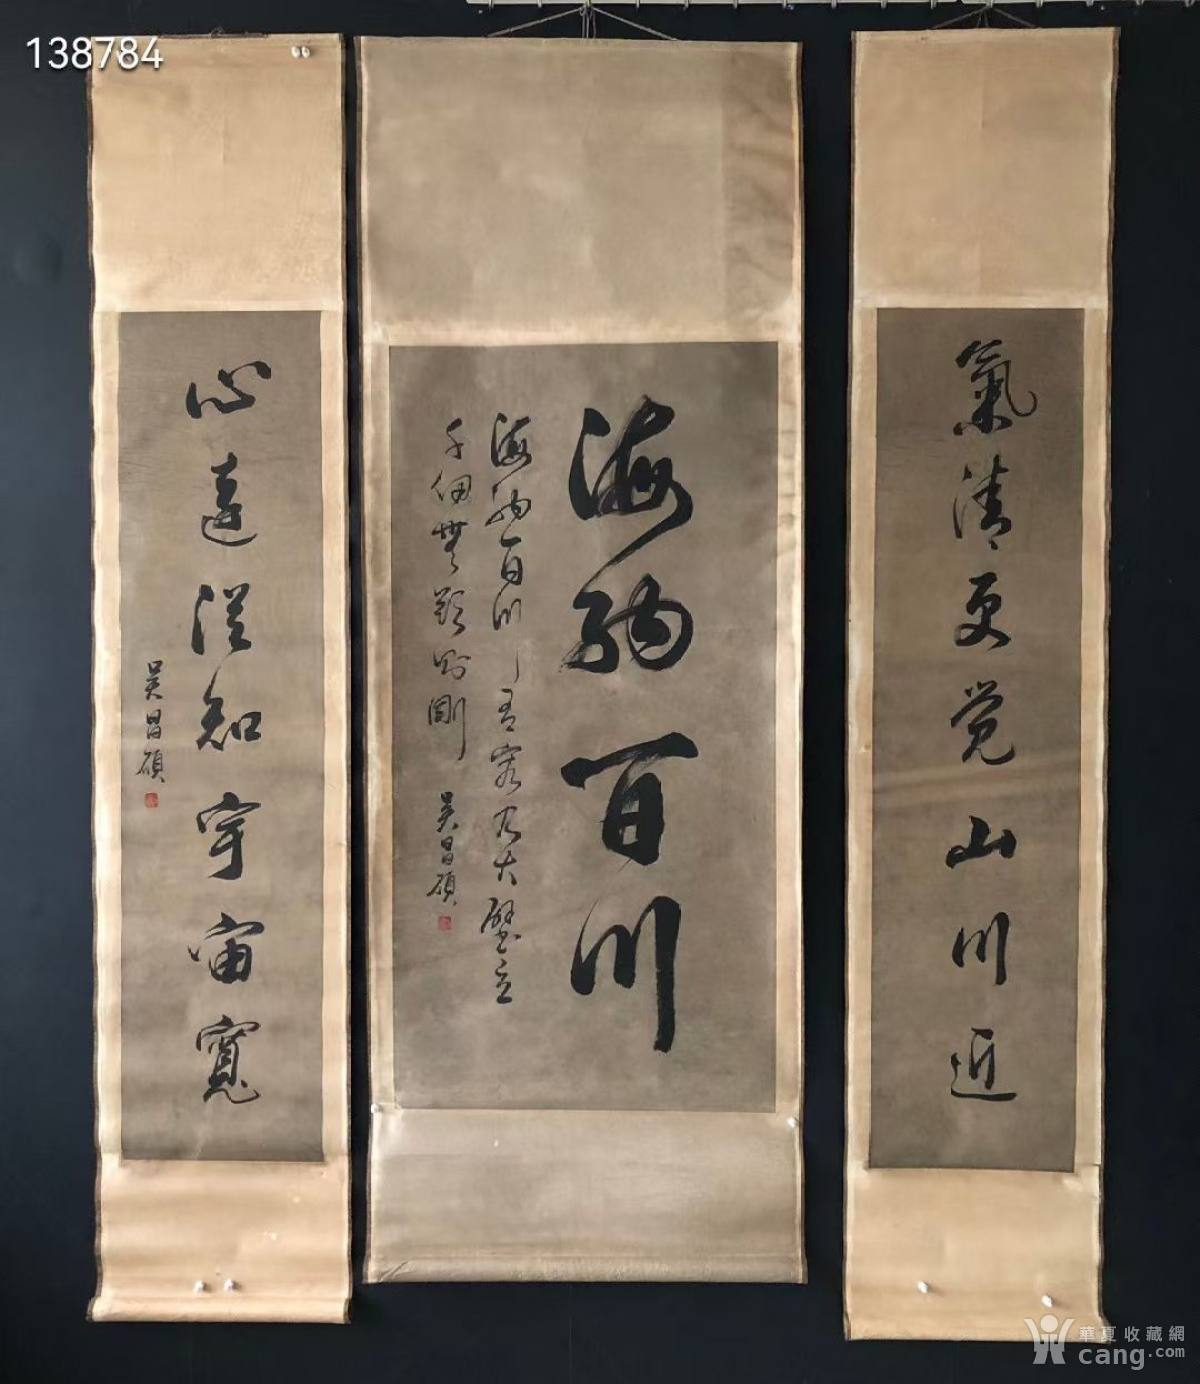 138784
氣清更觉山川近
海納百川
海納百川有容乃大壁立
千仞無欲則剛
吴昌碩
心遠從知宇宙寬
吴昌碩
華夏收藏網
cang.com